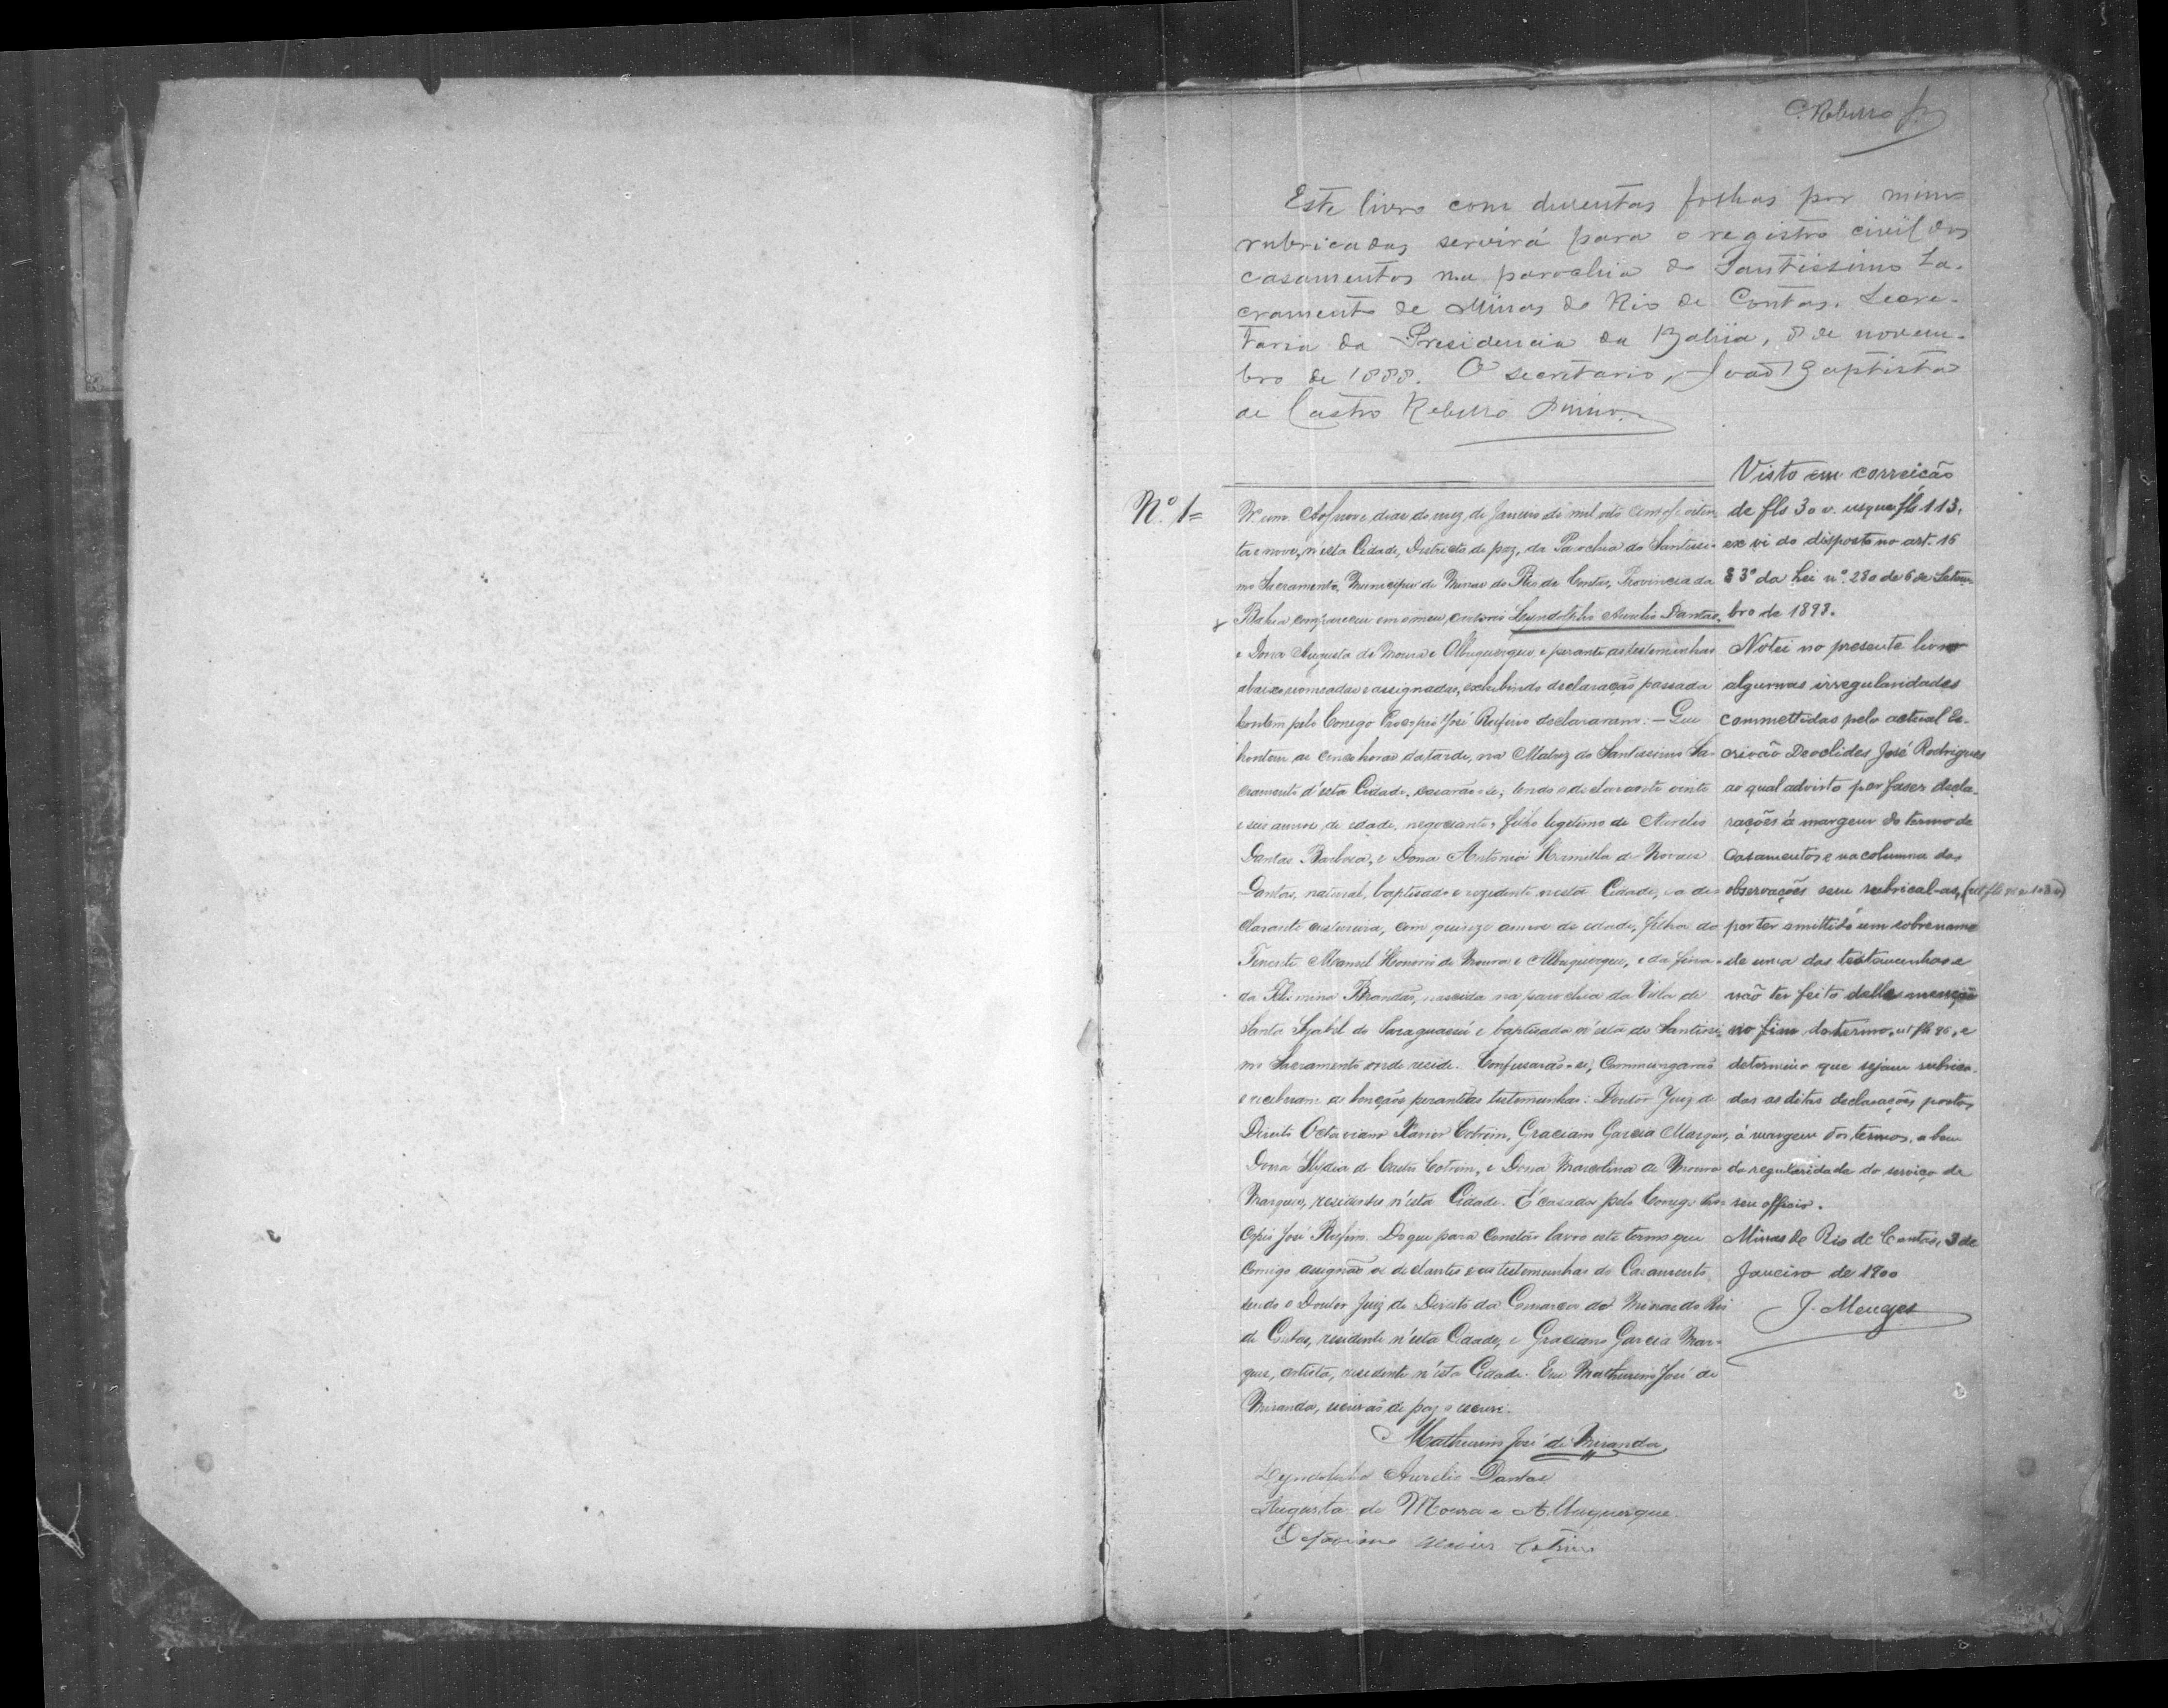 C. Rebello Jr
Este livro com duzentas folhas por mim
rubricadas servirá para o registro civil dos
casamentos na parochia do Santissimo Sa-
cramento de Minas do Rio de Contas. Secre-
taria da Presidencia da Bahia, 8 de novem-
bro de 1888. O secretario, João Baptista
de Castro Rebello Junior.
Nº 1=
Nº um. Aos nove dias do mez de Janeiro de mil oito centos e oiten-
ta e nove, n'esta Cidade, Districto de paz, da Parochia do Santissi-
mo Sacramento, Municipio de Minas do Rio de Contas, Provincia da
Bahia compareceu em o meu cartorio Lyndolpho Aurelio Dantas,
e Dona Augusta de Moura e Albuquerque, e perante as testemunhas
abaixo nomeadas e assignadas, exhibindo declaração passada
hontem pelo Conego Procopio José Rufino declararam: – Que
hontem as cinco horas da tarde, na Matriz do Santissimo Sa-
cramento d'esta Cidade, casarão-se, tendo o declarante vinte
e seis annos de edade, negociante, filho legitimo de Aurelio
Dantas Barbosa, e Dona Antonia Hermilla de Novaes
Dantas, natural, baptisado e rezidente nesta Cidade, e a de-
clarante costureira, com quinze annos de edade, filha do
Tenente Manoel Honorio de Moura e Albuquerque, e da fina-
da Brandão, nascida na parochia da Villa de
Santa Izabel do Paraguassú e baptisada n'esta do Santissi-
mo Sacramento onde reside. Confessarão-se, Commungarão
e receberam as bençãos perante as testemunhas: Doutor Juiz de
Direito Octaviano Xavier Cotrim, Graciano Garcia Marques,
Dona Lydia de Castro Cotrim, e Dona Marcolina de Moura
Marques, residentes n'esta Cidade. E casados pelo Conego Pro-
copio José Rufino. Do que para constar lavro este termo que
comigo assignão os declarantes e as testemunhas do Casamento
sendo o Doutor Juiz de Direito da Comarca de Minas do Rio
de Contas, residente n'esta Cidade, e Graciano Garcia Mar-
ques, artista, residente n'esta Cidade. Eu Mathurino José de
Miranda, escrivão de paz o escrevi.
Mathurino José de Miranda
Lyndolpho Aurelio Dantas
Augusta de Moura e Albuquerque
Octaviano Xavier Cotrim
Visto em correição
de fls 30 v. usque fls 113,
ex vi do disposto no art. 16
§ 3º da Lei nº 280 de 6 de Setem-
bro de 1898.
Notei no presente livro
algumas irregularidades
commettidas pelo actual Es-
crivão Deoclides José Rodrigues
ao qual advirto por faser decla-
rações á margem do termo de
Casamentos e na columna das
observações sem rubrical-as,
por ter omittido um sobrenome
de uma das testemunhas e
não ter feito della menção
no fim do termo, ut fls 86, e
determino que sejam rubrica-
das as ditas declarações postas
á margem dos termos, a bem
da regularidade do serviço de
seu officio.
Minas do Rio de Contas, 3 de
Janeiro de 1900
J. Menezes